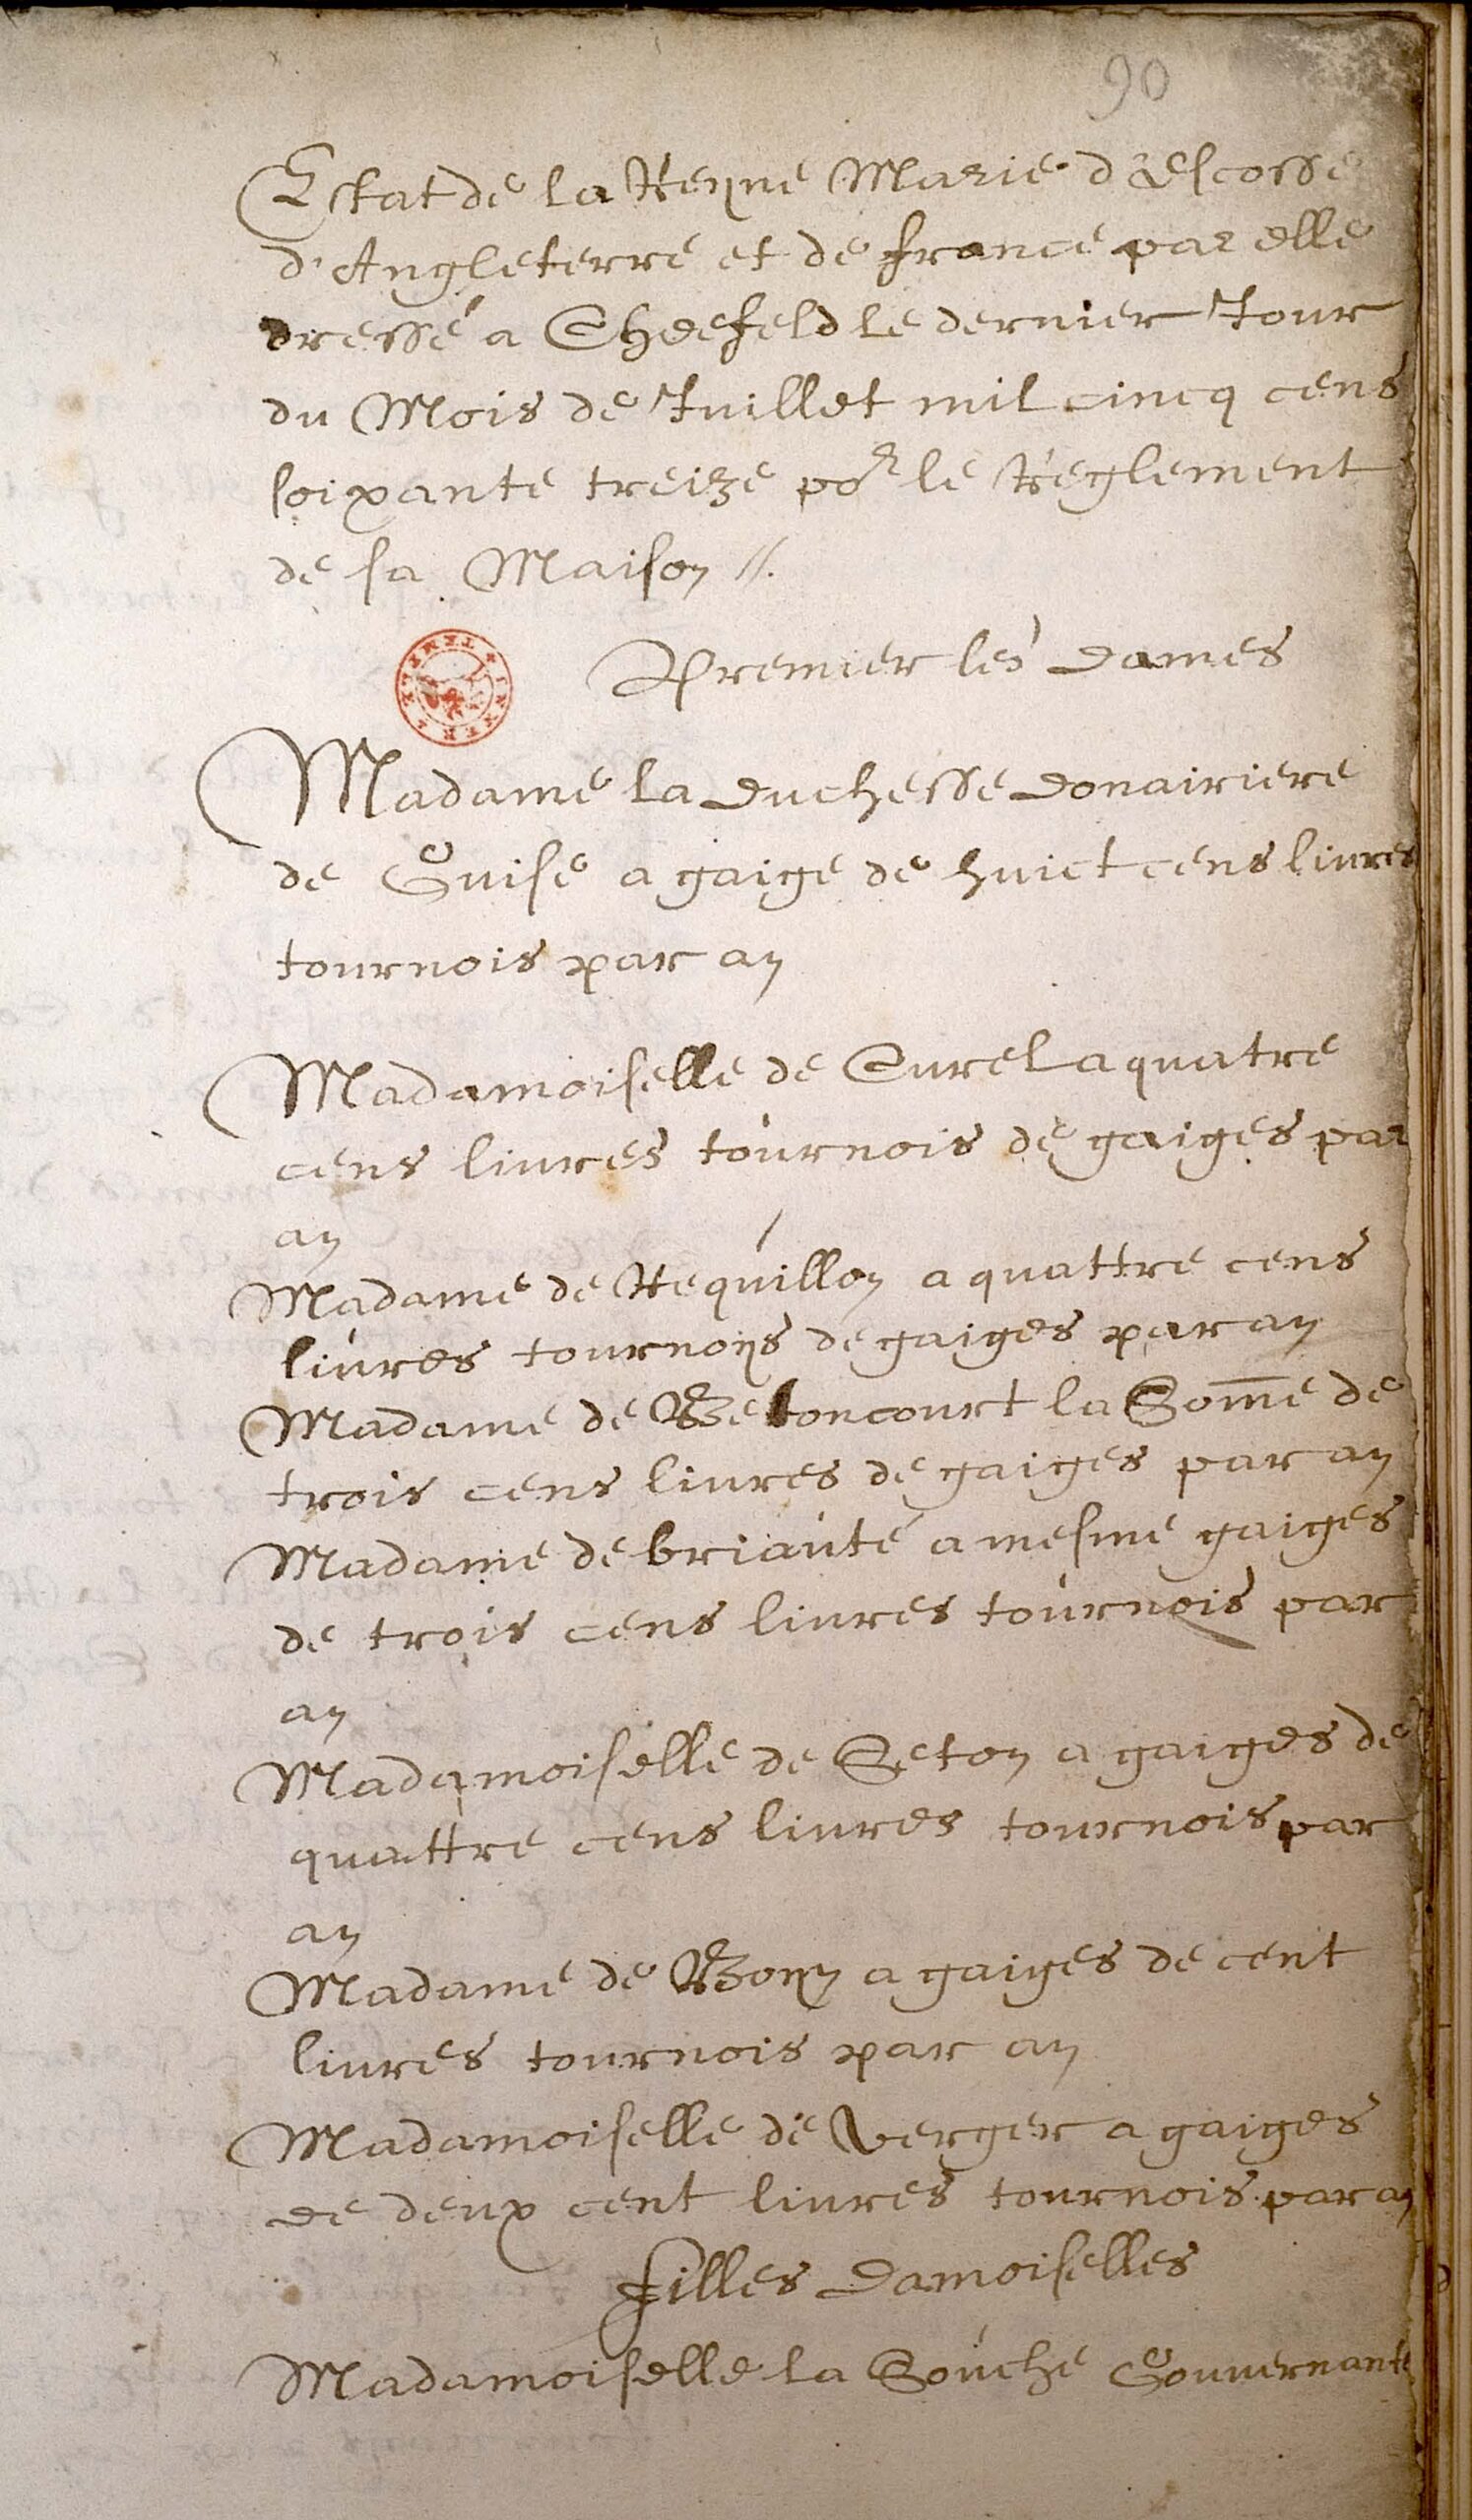 90
Estat de la Reyne Marie d'Escosse
d'Angleterre et de france par elle
dressé a Cheefeld le dernier Jour
du Mois de Juillet mil cincq cens
soixante treize por le Reglement
de sa Maison //.
Premier les Dames
INNER TEMPLE
Madame la Duchesse Donairiere
de Guise a gaige de huict cens liures
tournois par an
Madamoiselle de Curel a quatre
cens liures tournois de gaiges par
an
Madame de Requillon a quattre cens
liures tournoys de gaiges par an
Madame de Betoncourt la Som̅e de
trois cens liures de gaiges par an
Madame de briauté a mesme gaiges
de trois cens liures tournois par
an
Madamoiselle de Seton a gaiges de
quattre cens liures tournois par
an
Madame de Boyn a gaiges de cent
liures tournois par an
Madamoiselle de verger a gaiges
de deux cent liures tournois par an
filles Damoiselles
Madamoiselle la Souche Gouuernante